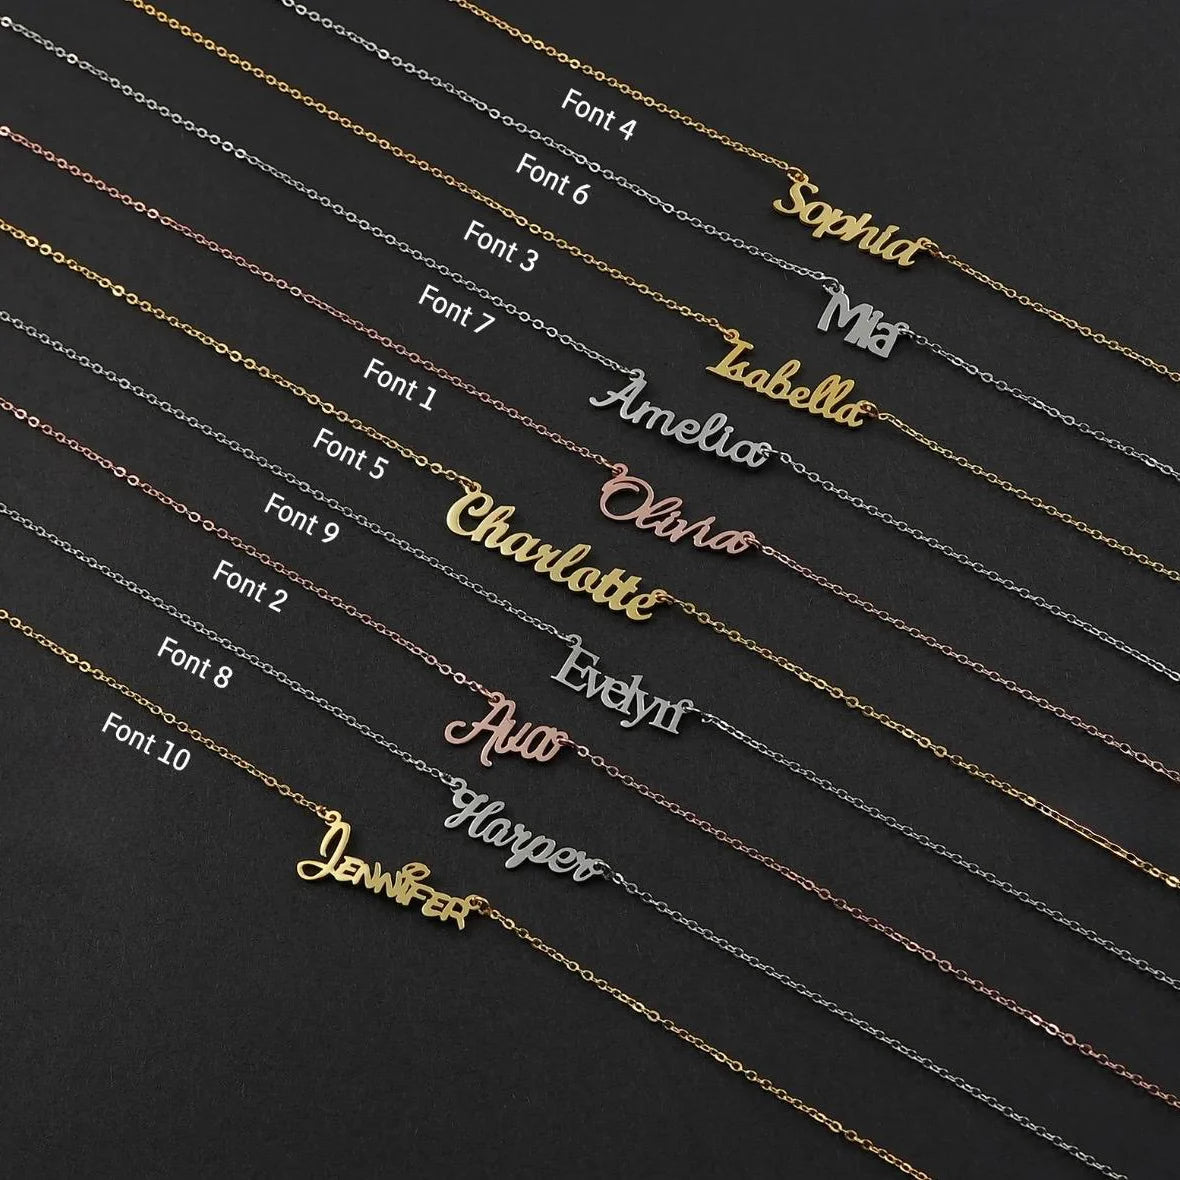 Font 4
Sophia
Font 6
Mia
Font 3
Isabella
Font 7
Amelia
Font 1
Olivia
Font 5
Charlotte
Font 9
Evelyn
Font 2
Ava
Font 8
Harper
Font 10
Jennifer